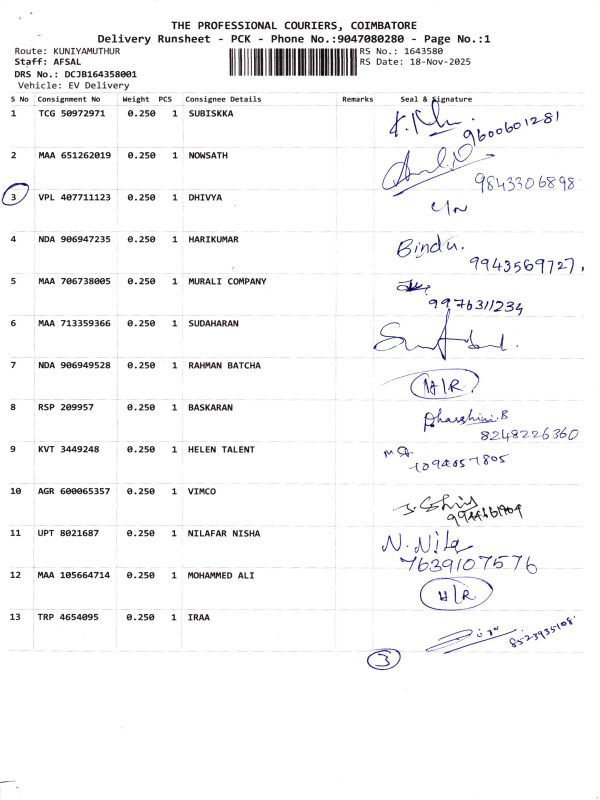 THE PROFESSIONAL COURIERS, COIMBATORE
Delivery Runsheet - PCK - Phone No.:9047080280 - Page No.:1
Route: KUNIYAMUTHUR RS No.: 1643580
Staff: AFSAL RS Date: 18-Nov-2025
DRS No.: DCJB164358001
Vehicle: EV Delivery
S No Consignment No Weight PCS Consignee Details Remarks Seal & Signature
1 TCG 50972971 0.250 1 SUBISKKA
9600601281
2 MAA 651262019 0.250 1 NOWSATH
9843306898
3 VPL 407711123 0.250 1 DHIVYA
4 NDA 906947235 0.250 1 HARIKUMAR Bindu.
9943569727,
5 MAA 706738005 0.250 1 MURALI COMPANY
9976311234
6 MAA 713359366 0.250 1 SUDAHARAN
7 NDA 906949528 0.250 1 RAHMAN BATCHA H/R
8 RSP 209957 0.250 1 BASKARAN Dharshini.B
8248226360
9 KVT 3449248 0.250 1 HELEN TALENT
10 AGR 600065357 0.250 1 VIMCO
11 UPT 8021687 0.250 1 NILAFAR NISHA N. Nila
7639107576
12 MAA 105664714 0.250 1 MOHAMMED ALI H/R
13 TRP 4654095 0.250 1 IRAA
3